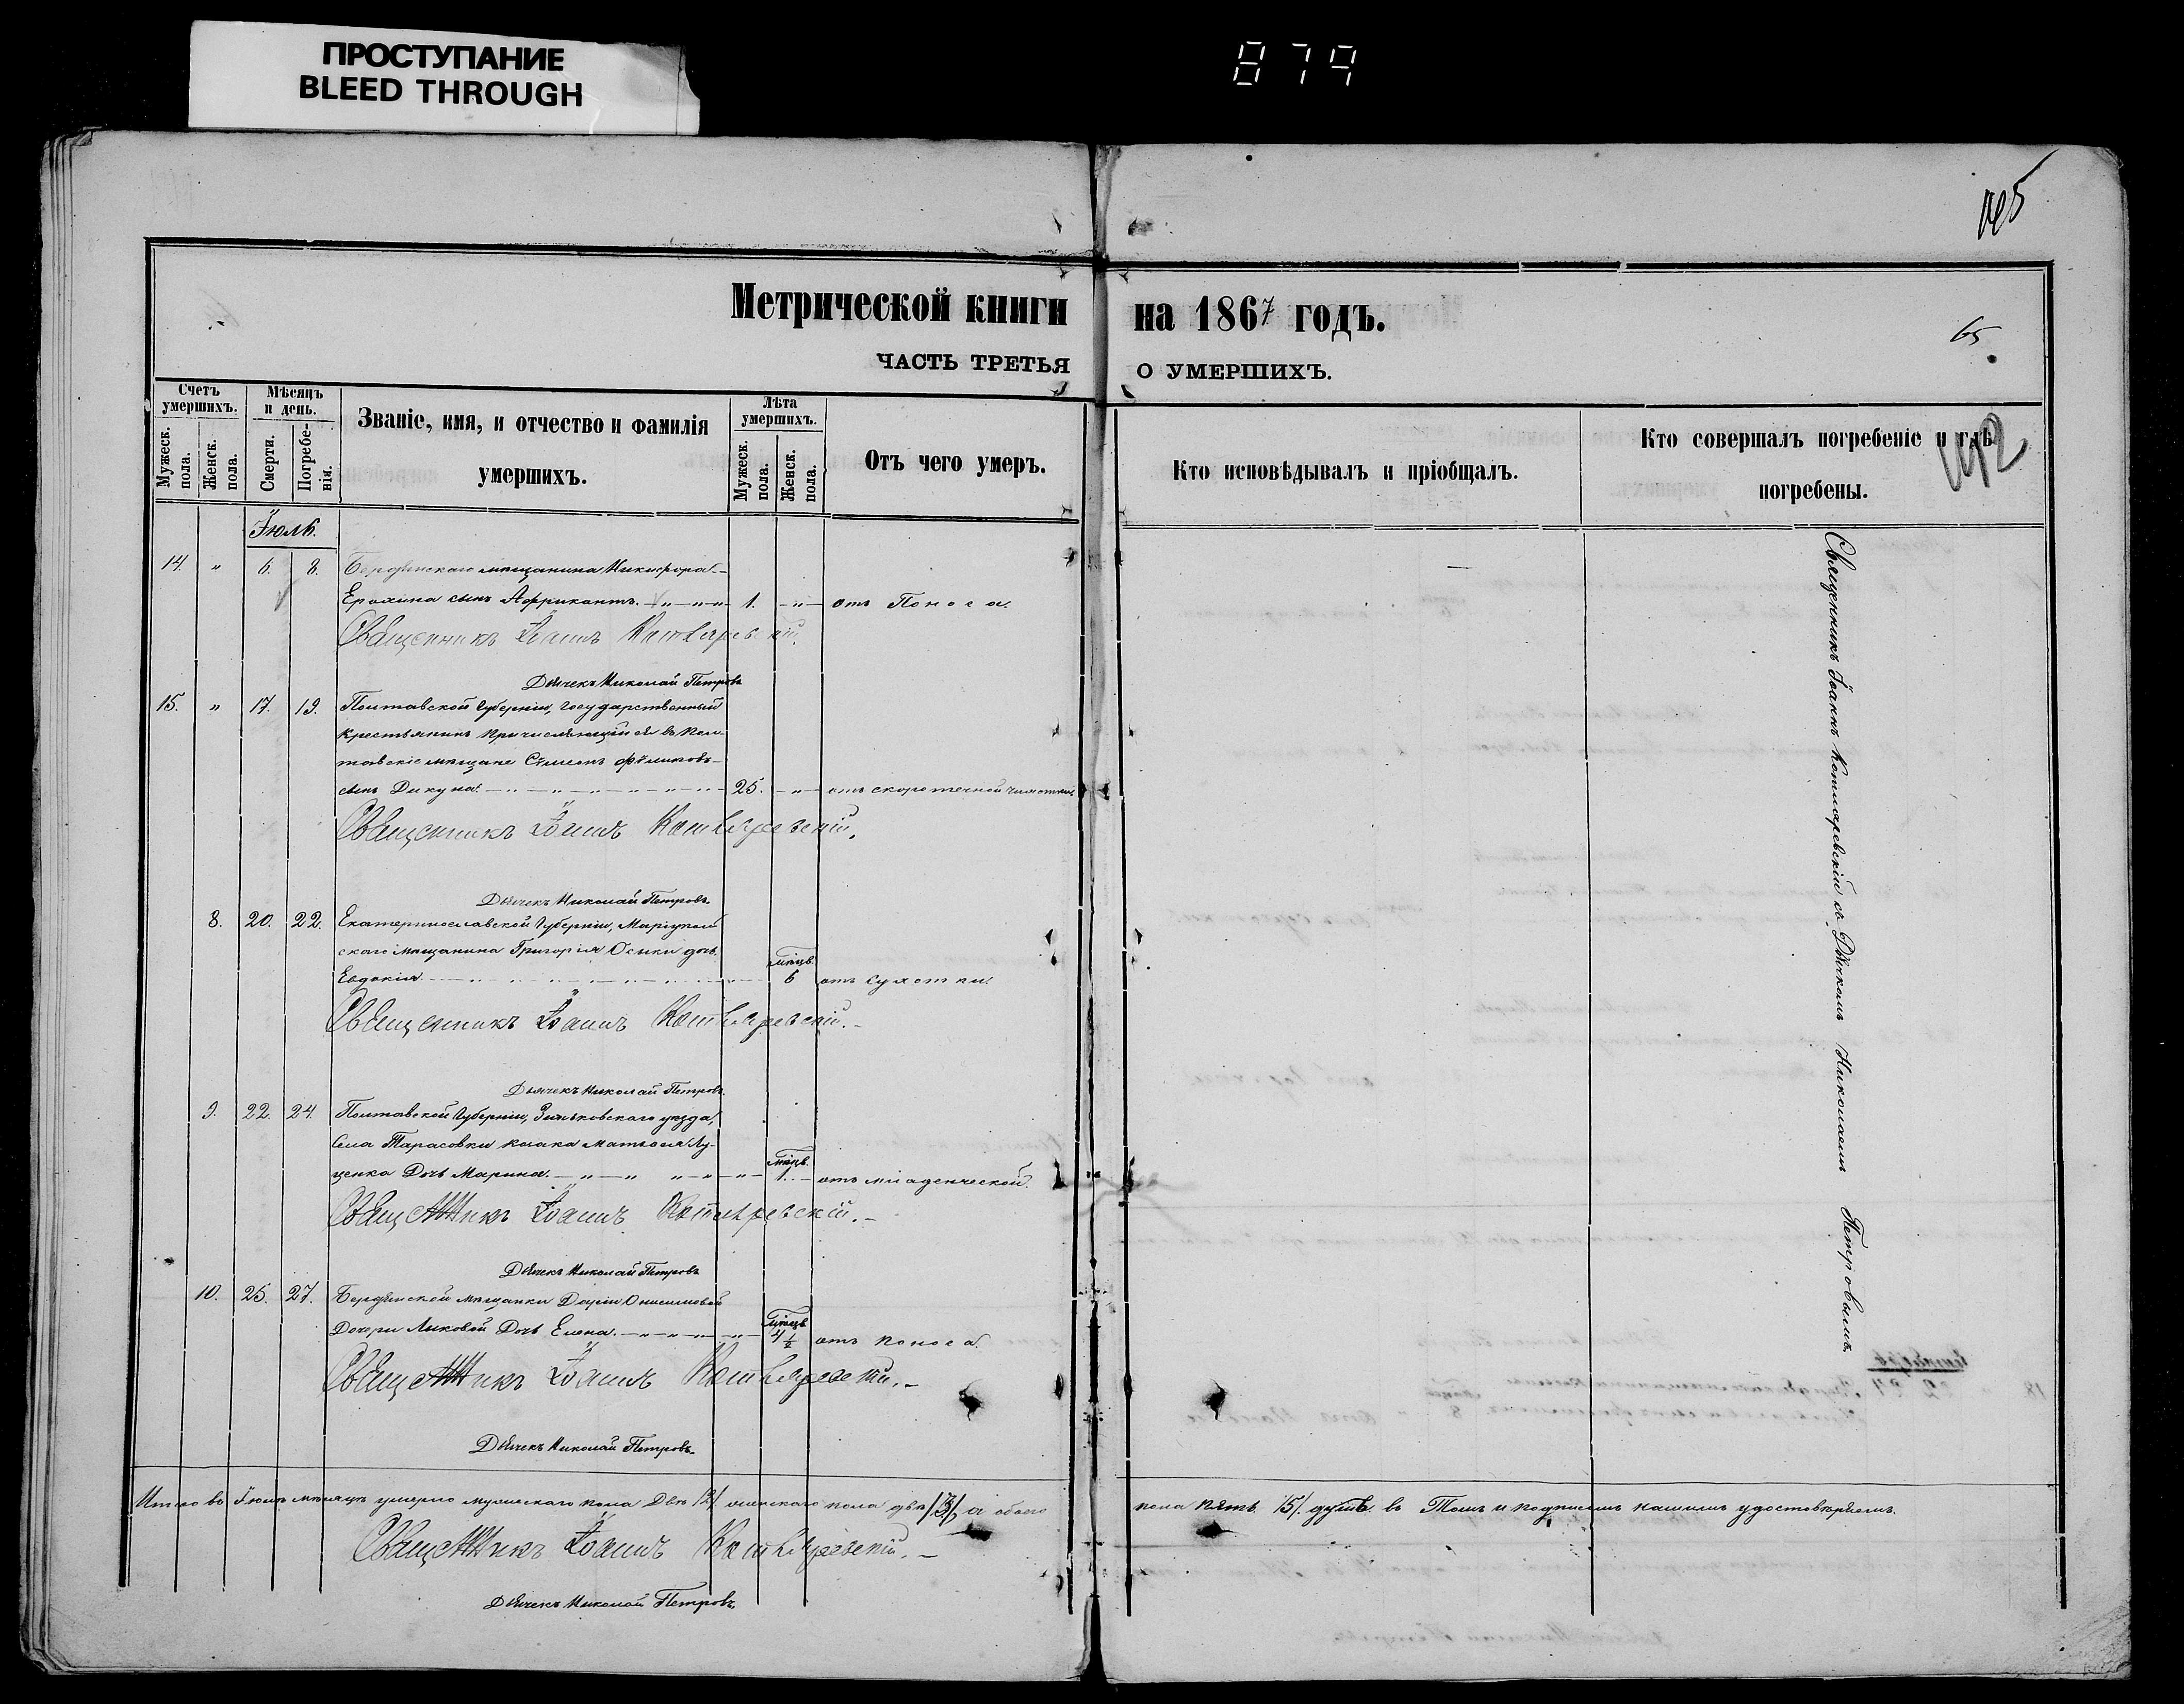 ПРОСТУПАНИЕ
BLEED THROUGH
879
Метрической книги на 1867 годъ.
65
ЧАСТЬ ТРЕТЬЯ О УМЕРШИХЪ.
Счетъ умершихъ.
Мужеск. пола.
Женск. пола.
Мѣсяцъ и день.
Смерти.
Погребенія.
Званіе, имя, и отчество и фамилія умершихъ.
Лѣта умершихъ.
Мужеск. пола.
Женск. пола.
Отъ чего умеръ.
Кто исповѣдывалъ и пріобщалъ.
Кто совершалъ погребеніе и гдѣ погребены.
Іюль.
14. " 6. 8. Бердянскаго мѣщанина Никифора
Ерохина сынъ Африкантъ. 1. " отъ Поноса.
Священникъ Іоаннъ Котляревскій.
Дьячекъ Николай Петровъ
15. " 17. 19. Полтавской Губерніи, Государственный
крестьянинъ причисляющійся въ Пол-
тавскіе мѣщане Сѵмеонъ
сынъ Дикуна. 25. " отъ скоротечной чахотки.
Священникъ Іоаннъ Котляревскій.
Дьячекъ Николай Петровъ.
8. 20. 22. Екатеринославской Губерніи, Маріуполь
скаго мѣщанина Григорія Осыки дочь
Евдокія. мѣсцв. 6 отъ Сухотки.
Священникъ Іоаннъ Котляревскій.
Дьячекъ Николай Петровъ.
9. 22. 24. Полтавской Губерніи, Зиньковскаго уѣзда,
Села Тарасовки козака Матвея Лу-
ценка Дочь Марина. мѣсцв. 1. отъ младенческой.
Священникъ Іоаннъ Котляревскій.
Дьячекъ Николай Петровъ
10. 25. 27. Бердянской мѣщанки Даріи Онисимовой
Дочери Лыковой Дочь Елена. мѣсцв. 4½ отъ поноса.
Священникъ Іоаннъ Котляревскій.
Дьячекъ Николай Петровъ.
Итого въ Іюлѣ мѣсяцѣ умерло мужескаго пола Два /2/ женскаго пола два /3/ а обоего пола пять /5/ душъ въ Томъ и подписомъ нашимъ удостовѣряемъ.
Священникъ Іоаннъ Котляревскій.
Дьячекъ Николай Петровъ
Священникъ Іоаннъ Котляревскій съ Дьячкомъ Николаемъ Петровымъ.